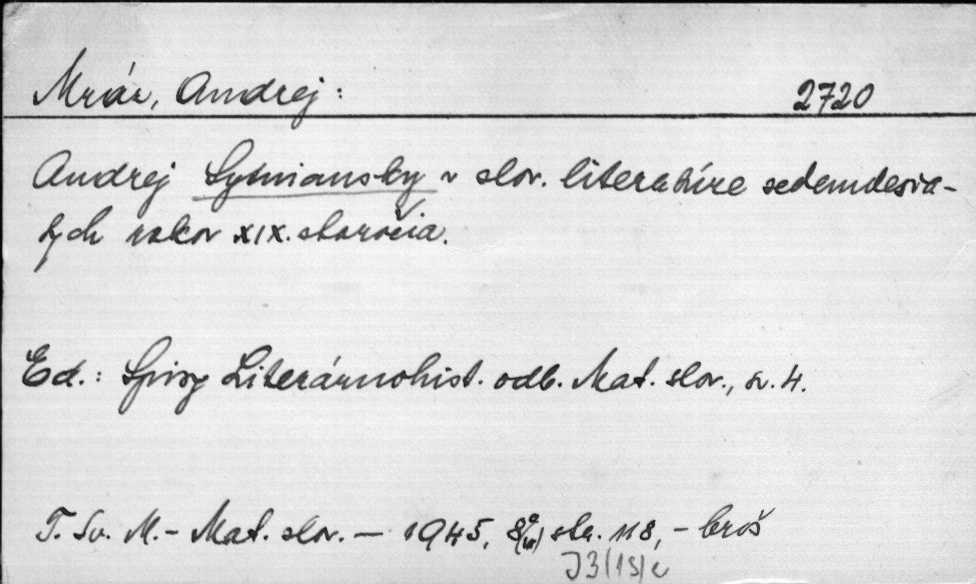 Mráz, Andrej: 2720
Andrej Sytniansky v slov. literatúre sedemdesia-
tych rokov XIX. storočia.
Ed.: Spisy Literárnohist. odb. Mat. slov., sv. 4.
T. Sv. M. - Mat. slov. — 1945, 8° str. 118, - brož